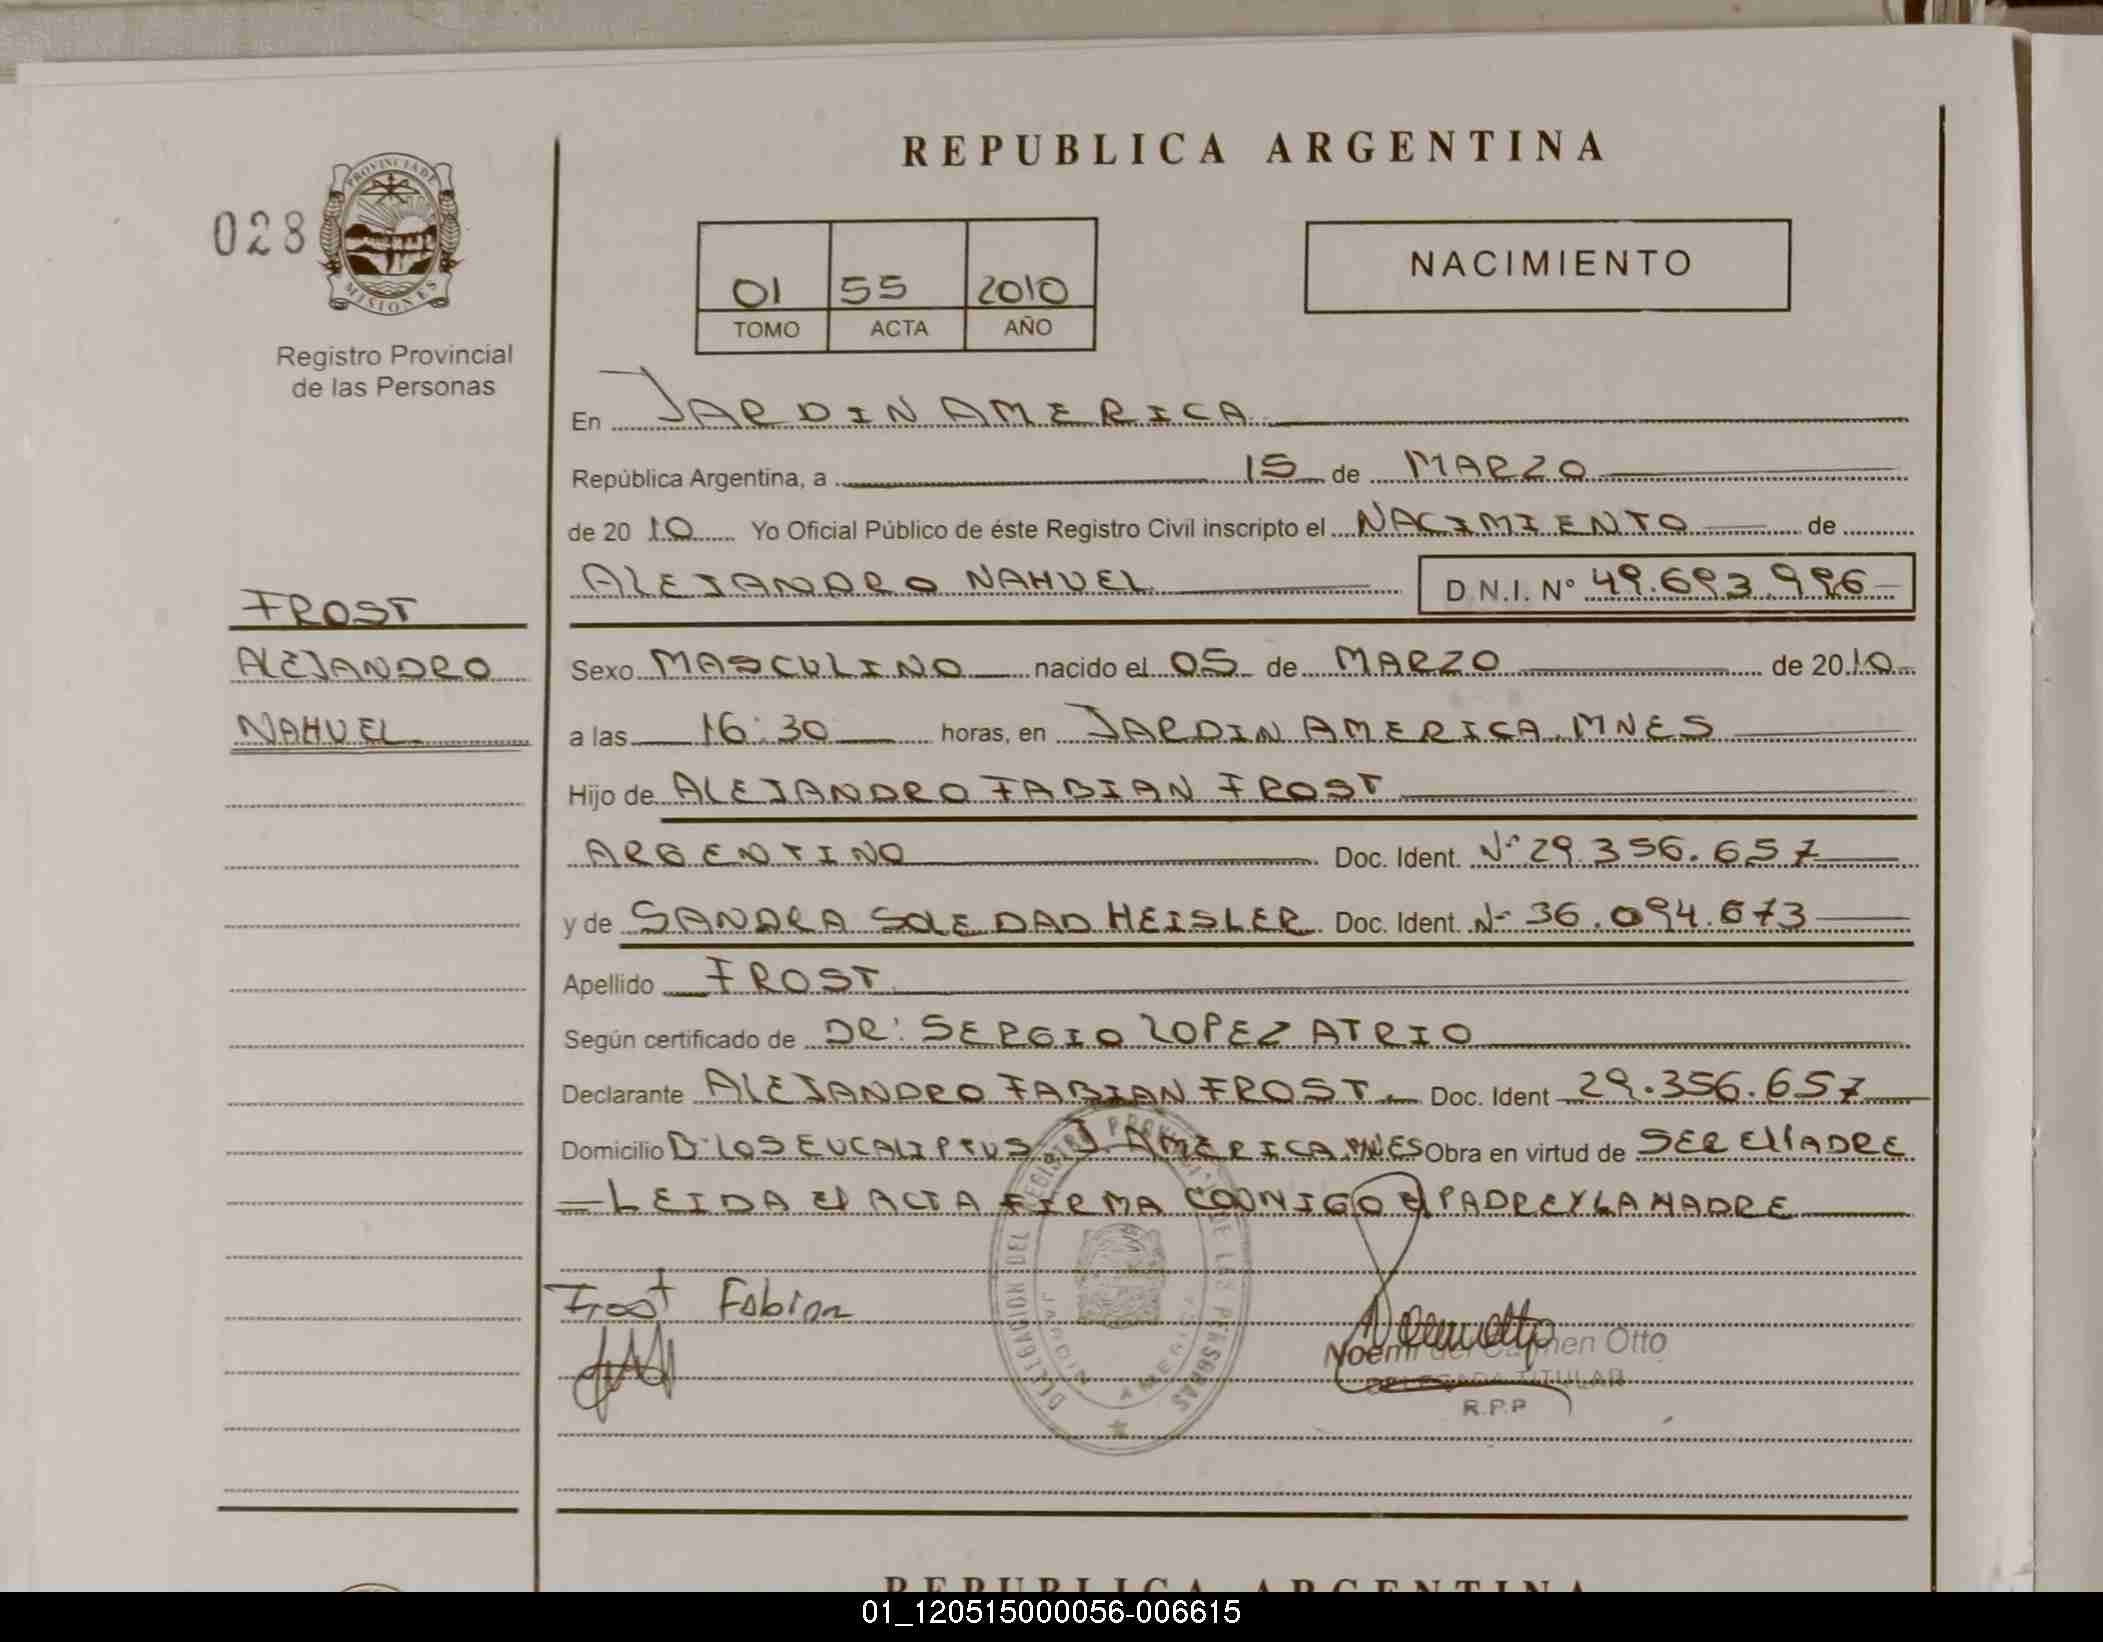 REPUBLICA ARGENTINA
028
PROVINCIA DE
MISIONES
Registro Provincial
de las Personas
01 55 2010
TOMO ACTA AÑO
NACIMIENTO
En JARDIN AMERICA
República Argentina, a 15 de MARZO
de 20 10 Yo Oficial Público de éste Registro Civil inscripto el NACIMIENTO de
ALEJANDRO NAHUEL D N.I. Nº 49.693.996
FROST
ALEJANDRO
NAHUEL
Sexo MASCULINO nacido el 05 de MARZO de 20 10
a las 16:30 horas, en JARDIN AMERICA. MNES
Hijo de ALEJANDRO FABIAN FROST
ARGENTINO Doc. Ident. Nº 29.356.657
y de SANDRA SOLEDAD HEISLER Doc. Ident. Nº 36.094.673
Apellido FROST
Según certificado de DR: SERGIO LOPEZ ATRIO
Declarante ALEJANDRO FABIAN FROST. Doc. Ident 29.356.657
Domicilio Bº LOS EUCALIPTUS J. AMERICA MNES Obra en virtud de SER El PADRE
LEIDA El ACTA FIRMA CONMIGO El PADRE Y LA MADRE
Frost Fabian
DELEGACION DEL REGISTRO PROVINCIAL DE LAS PERSONAS
JARDIN AMERICA
Noemi del Carmen Otto
DELEGADA TITULAR
R.P.P
REPUBLICA ARGENTINA
01_120515000056-006615